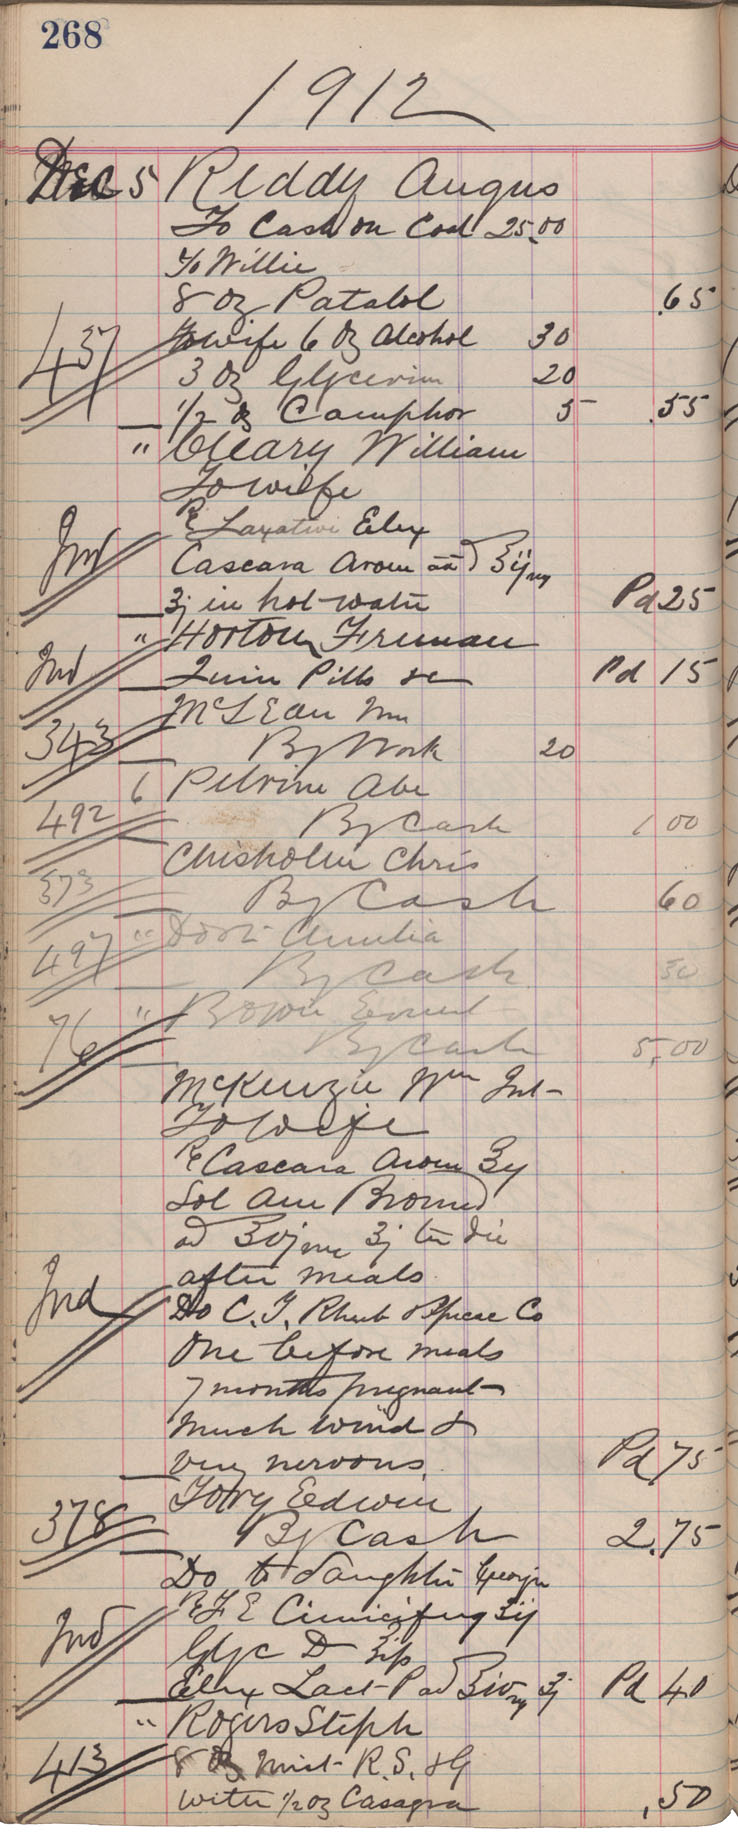 268
1912
Dec 5 Reddy Angus
To Cash on Coal 25.00
To Willie
8 oz Patalol .65
437 To wife 6 oz Alcohol 30
3 oz Glycerin 20
1/2 oz Camphor 5 .55
" Cleary William
To wife
Ind ℞ Laxative Elix
Cascara Arom āā ℥ij
ʒj in hot water Pd 25
" Horton Freeman
Ind Quin Pills &c Pd 15
McLean Wm
343 By Work 20
6 Petrine Abe
492 By Cash 1 00
Chisholm Chris
573 By Cash 60
497 " Doort Amelia
By Cash 30
76 " Bowie Ernest
By Cash 5.00
McKenzie Wm Int
To Wife
℞ Cascara Arom ℥ij
Sol Am Bromid
ad ℥vj ʒj ter die
after meals
Ind Do C.T. Rhub & Co
One before meals
7 months pregnant
Much wind &
very nervous Pd 75
Tory Edwin
378 By Cash 2.75
Do to daughter
℞ F E Cimicifug ʒij
Ind Glyc
Elix Lact P ad ℥iv ʒj Pd 40
" Rogers Steph
413 8 oz Mist R.S. & G
with 1/2 oz Casagra .50